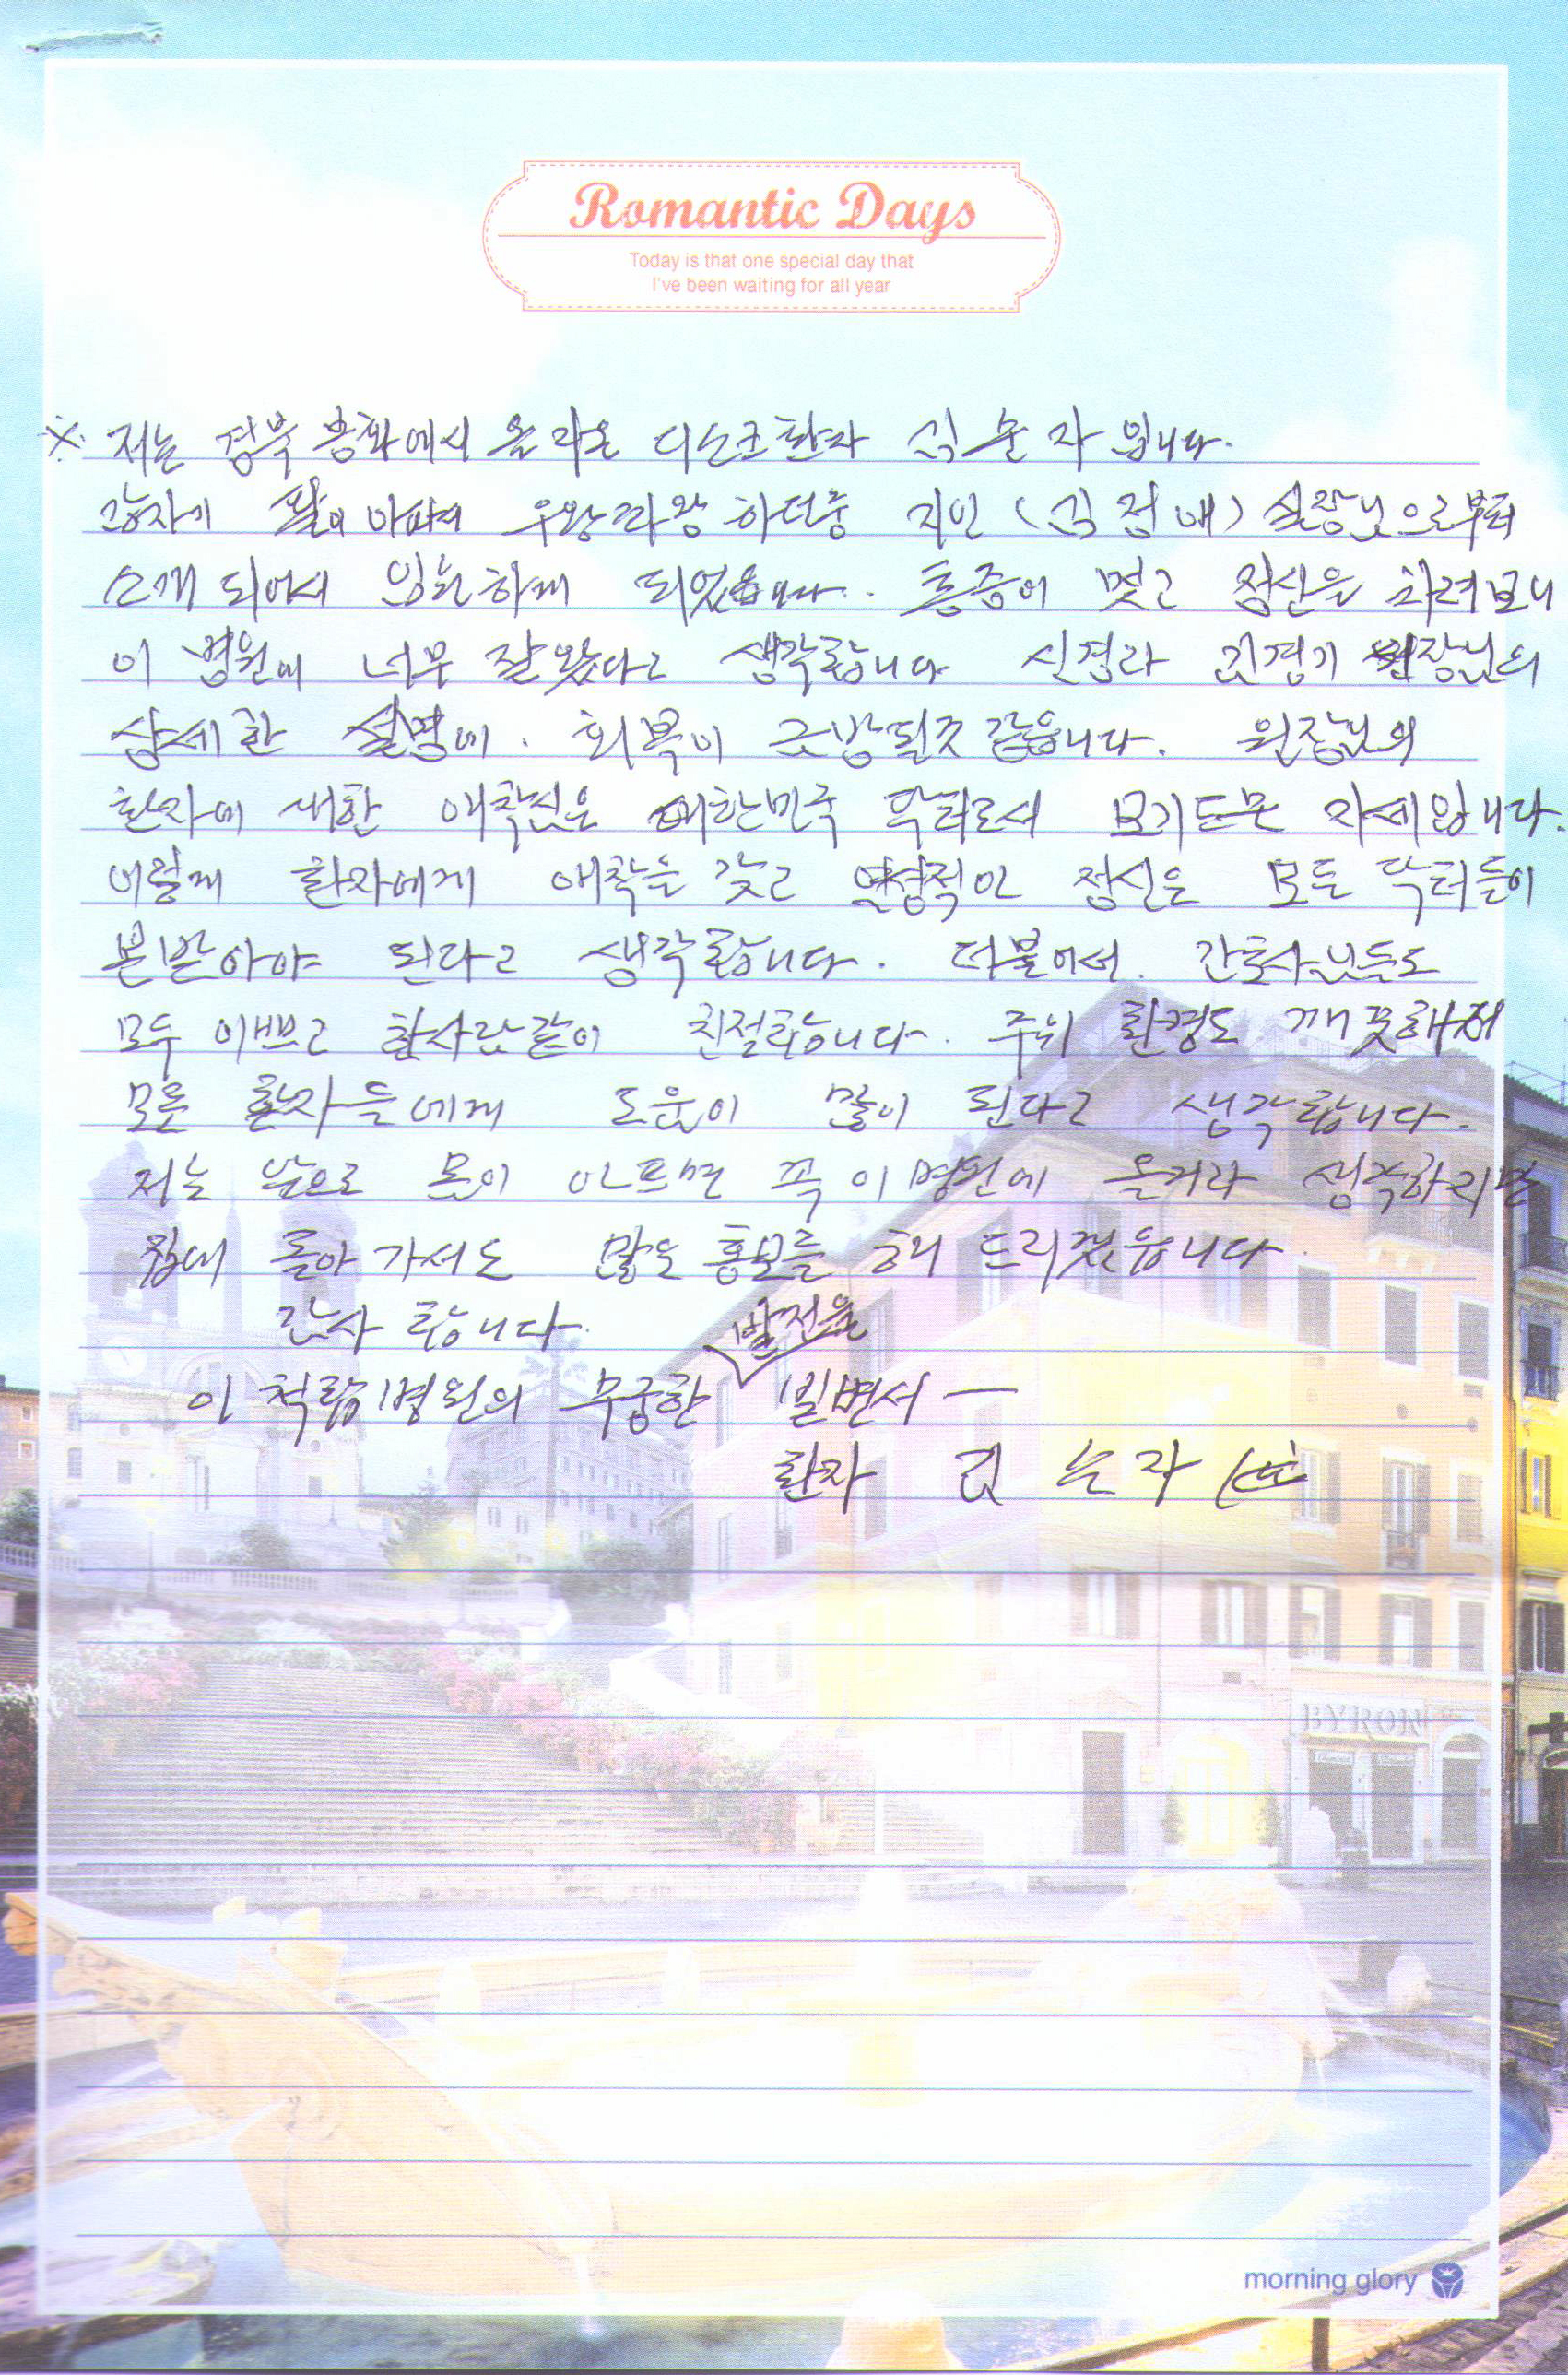 Romantic Days
Today is that one special day that
I've been waiting for all year
※ 저는 경북 봉화에서 올라온 디스크환자 김순자 입니다.
갑자기 팔이 아파서 우왕좌왕 하던중 지인 (김정애) 실장님으로부터
소개 되어서 입원하게 되었습니다. 통증이 멎고 정신을 차려보니
이 병원에 너무 잘 왔다고 생각합니다 신경과 김경기 원장님의
상세한 설명에. 회복이 금방될것 같읍니다. 원장님의
환자에 대한 애착심은 대한민국 닥터로서 보기드문 자세입니다.
이렇게 환자에게 애착을 갖고 열성적인 정신은 모든 닥터들이
본받아야 된다고 생각합니다. 더불어서. 간호사님들도
모두 이쁘고 한사람같이 친절합니다. 주위 환경도 깨끗해서
모든 환자들에게 도움이 많이 된다고 생각합니다.
저는 앞으로 몸이 아프면 꼭 이 병원에 올거라 생각하며
집에 돌아 가서도 많은 홍보를 해 드리겠읍니다.
감사 합니다.
발전을
이 척탑병원의 무궁한 빌면서 —
환자 김 순 자
BYRON
morning glory